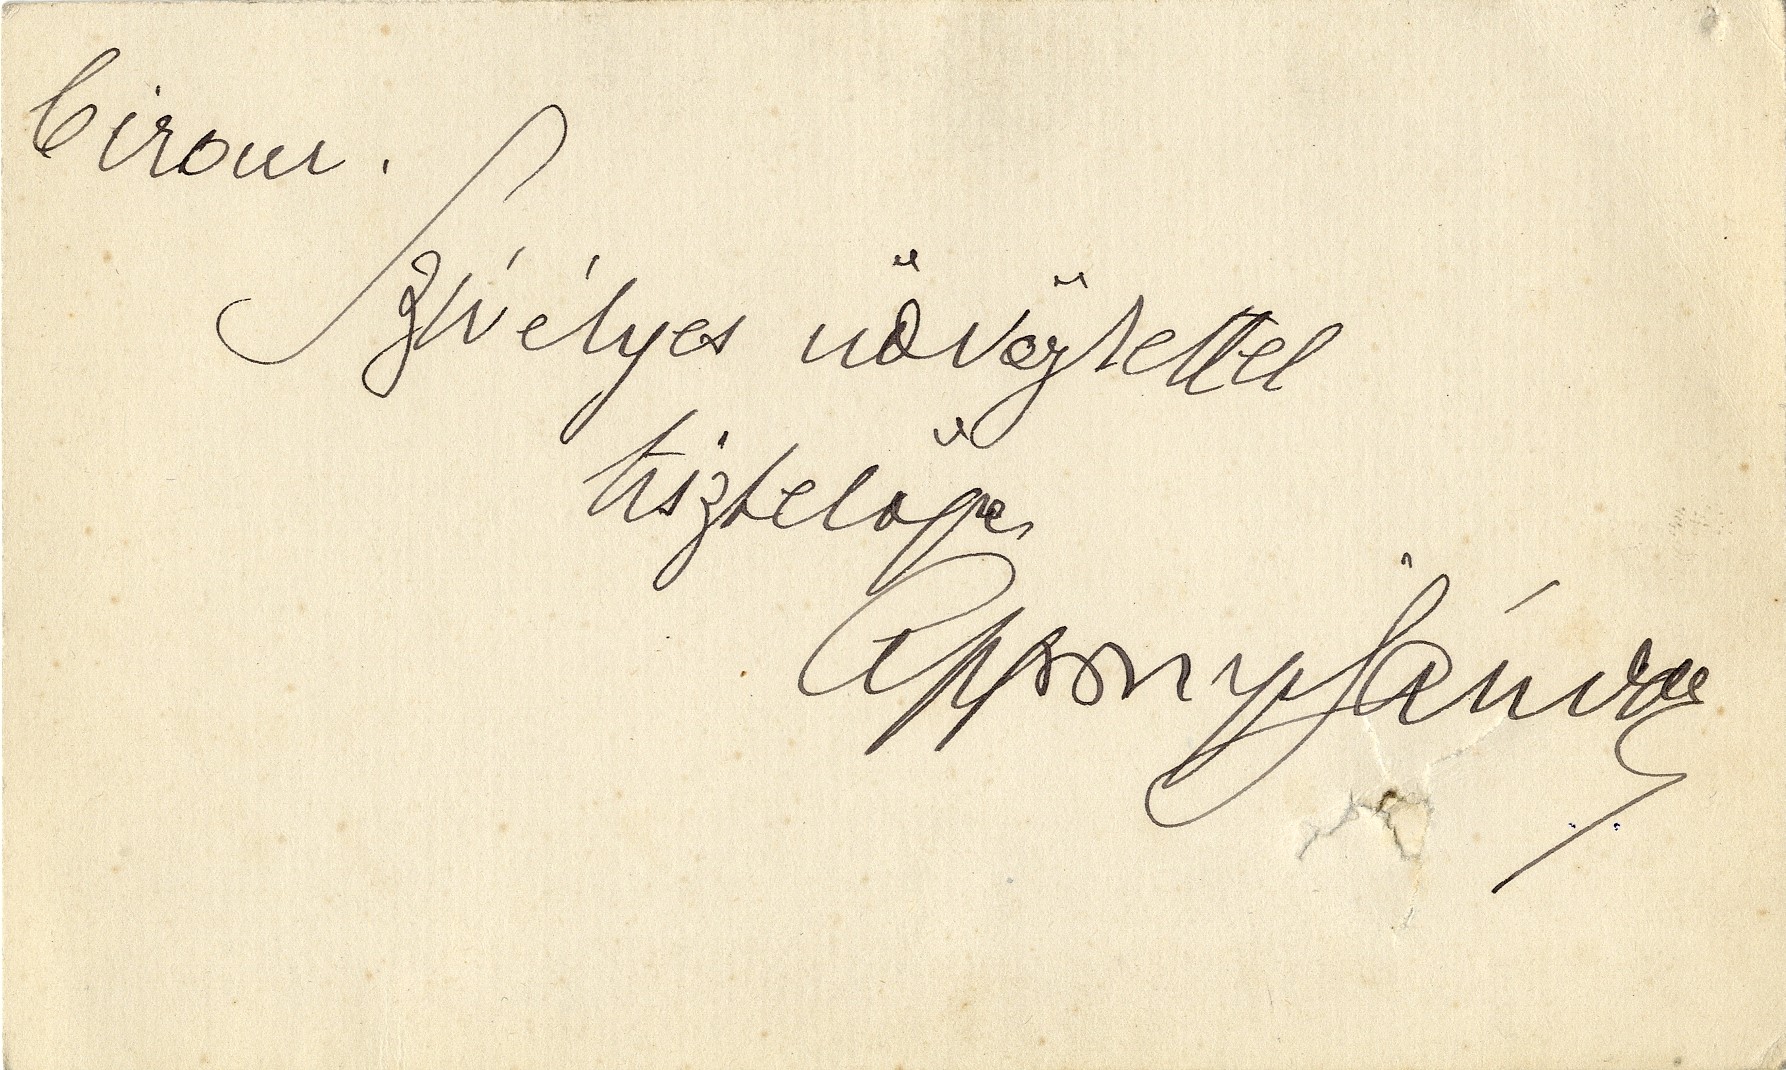 birom.
Szívélyes üdvözlettel
tisztelője
Apponyi Sándor